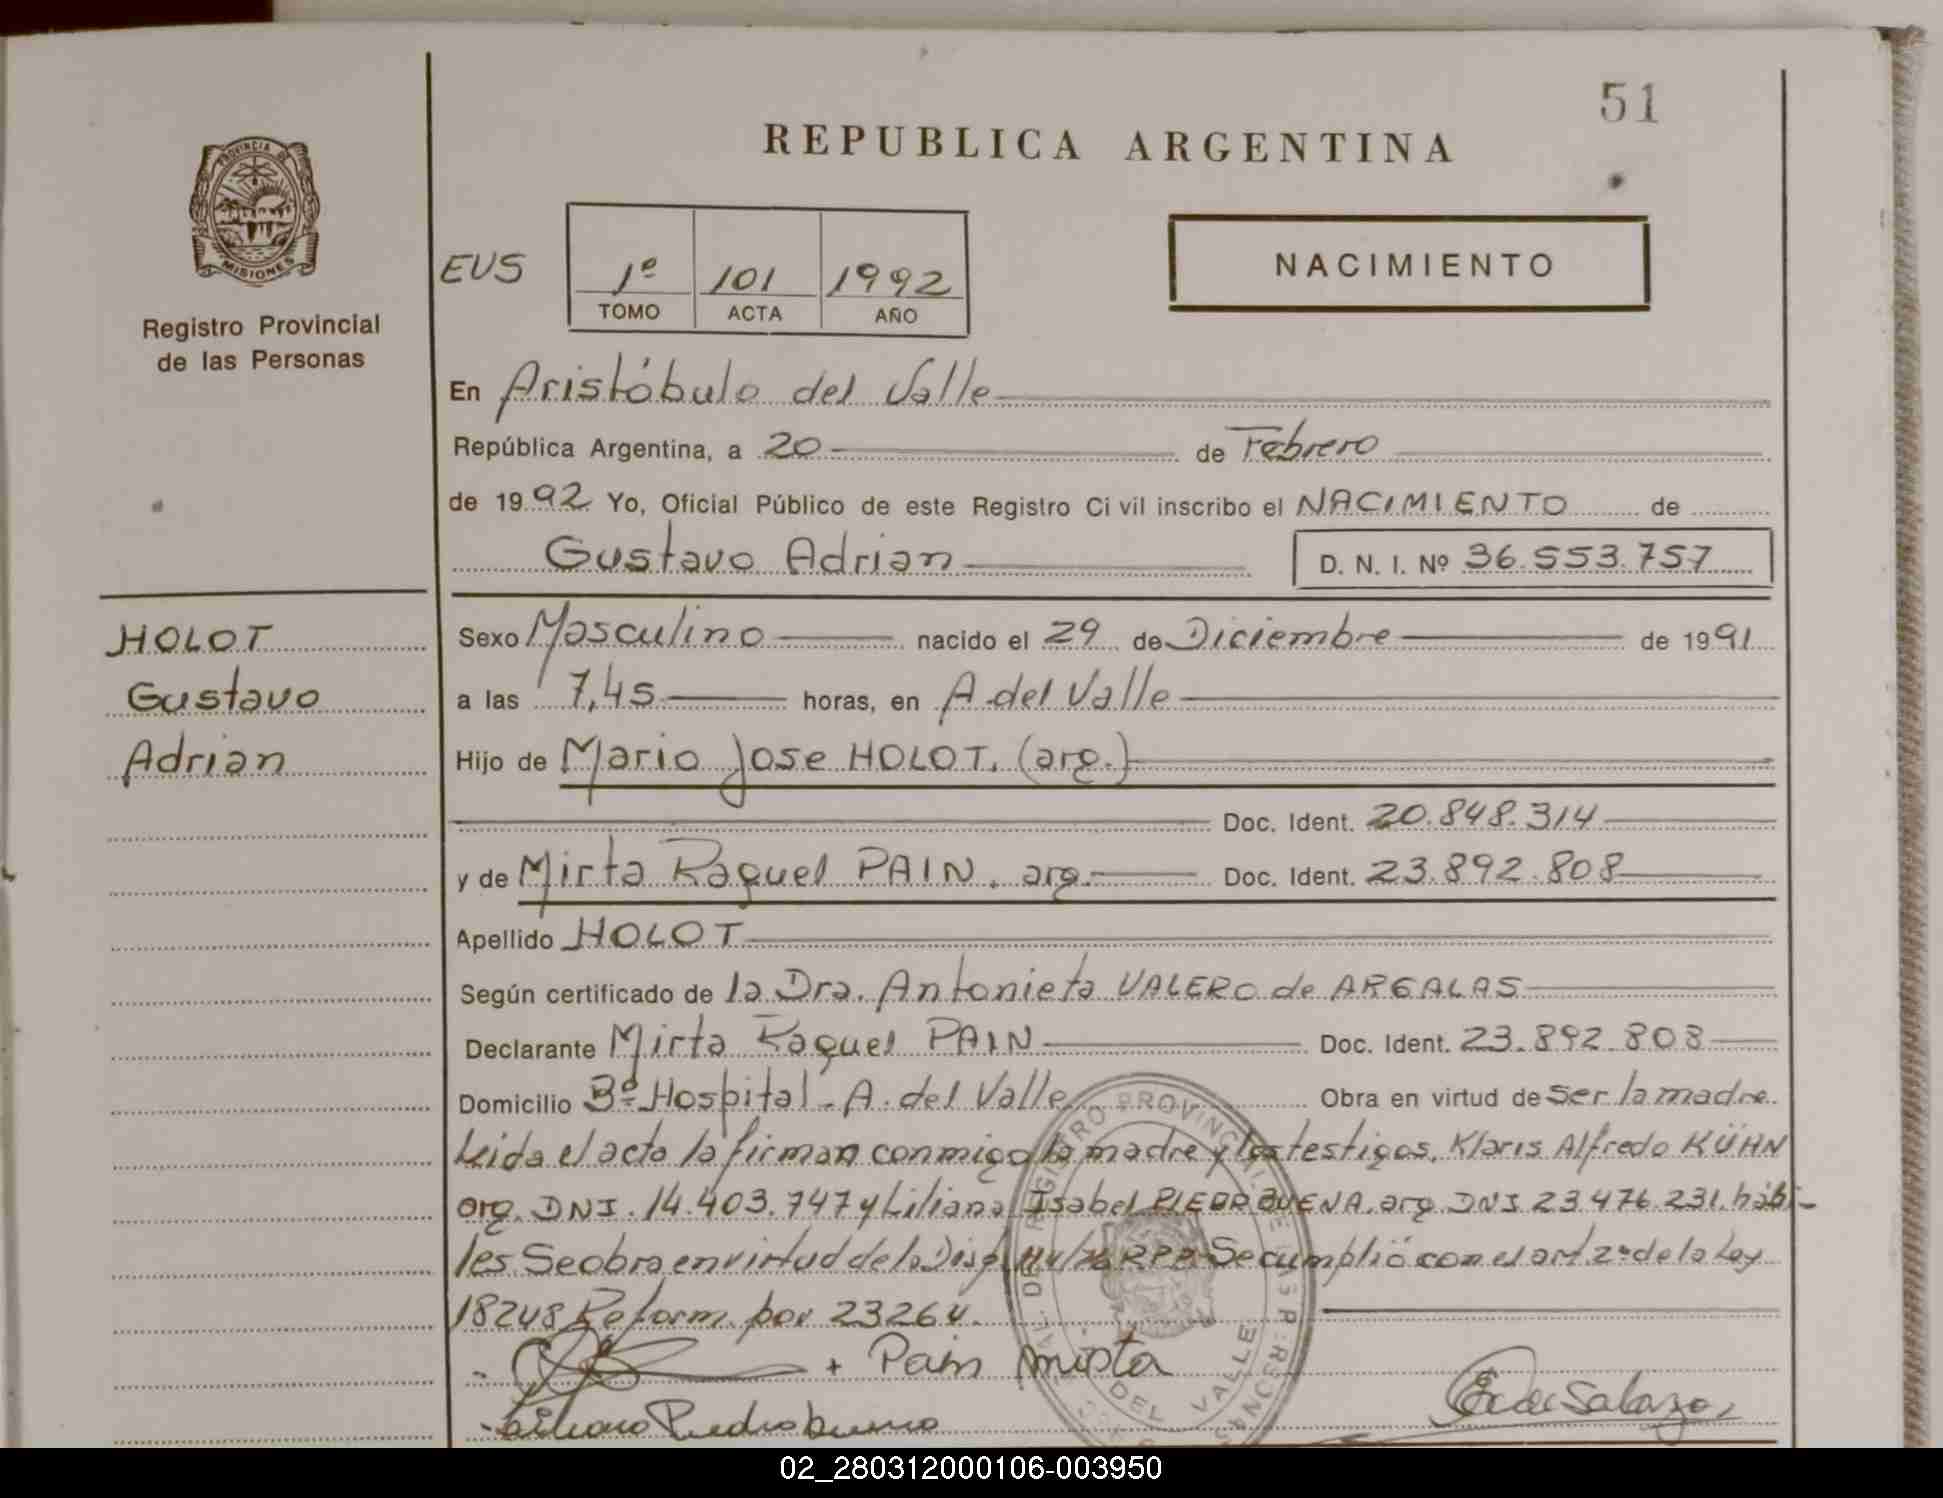 51
REPUBLICA ARGENTINA
PROVINCIA DE
MISIONES
Registro Provincial
de las Personas
EUS
1º 101 1992
TOMO ACTA AÑO
NACIMIENTO
En Aristóbulo del Valle
República Argentina, a 20 de Febrero
de 1992 Yo, Oficial Público de este Registro Ci vil inscribo el NACIMIENTO de
Gustavo Adrian D. N. I. Nº 36.553.757
HOLOT
Gustavo
Adrian
Sexo Masculino nacido el 29 de Diciembre de 1991
a las 7,45 horas, en A. del Valle
Hijo de Mario Jose HOLOT. (arg.)
Doc. Ident. 20.848.314
y de Mirta Raquel PAIN. arg. Doc. Ident. 23.892.808
Apellido HOLOT
Según certificado de la Dra. Antonieta VALERO de ARGALAS
Declarante Mirta Raquel PAIN Doc. Ident. 23.892.808
Domicilio Bº Hospital - A. del Valle Obra en virtud de ser la madre.
Leida el acta la firman conmigo la madre y los testigos, Klaris Alfredo KÜHN
arg. DNI. 14.403.747 y Liliana Isabel PIEDRABUENA. arg. DNI 23.476.231. hábi-
les. Se obra en virtud de la Disp. Se cumplió con el art. 2º de la Ley
18248 Reform. por 23264.
+ Pain mirta
Liliana Piedrabuena
E. de Salazar
REGISTRO PROVINCIAL DE LAS PERSONAS
DEL VALLE
02_280312000106-003950